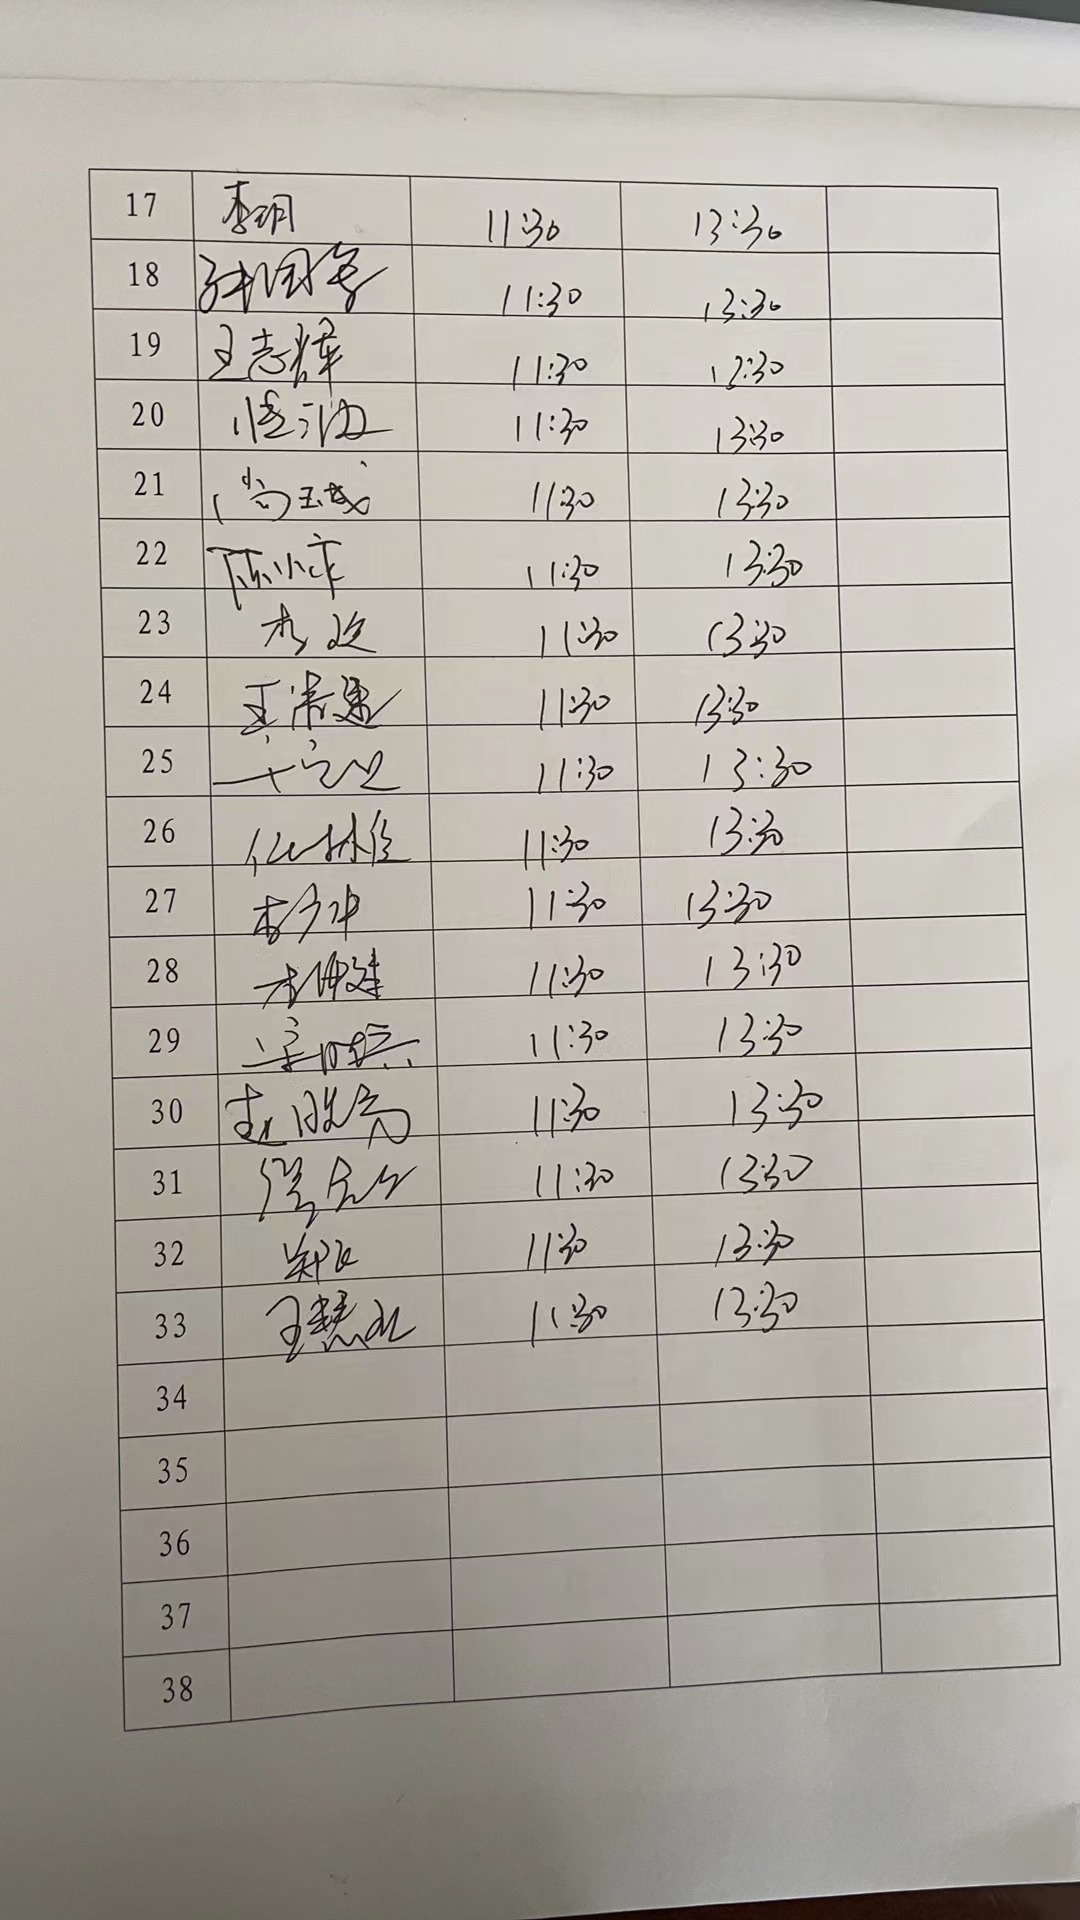 17 李玥 11:30 13:30
18 11:30 13:30
19 王志辉 11:30 13:30
20 11:30 13:30
21 尚玉成 11:30 13:30
22 陈小 11:30 13:30
23 11:30 13:30
24 王 11:30 13:30
25 11:30 13:30
26 11:30 13:30
27 李 11:30 13:30
28 11:30 13:30
29 11:30 13:30
30 赵 11:30 13:30
31 11:30 13:30
32 郑 11:30 13:30
33 王慧 11:30 13:30
34
35
36
37
38